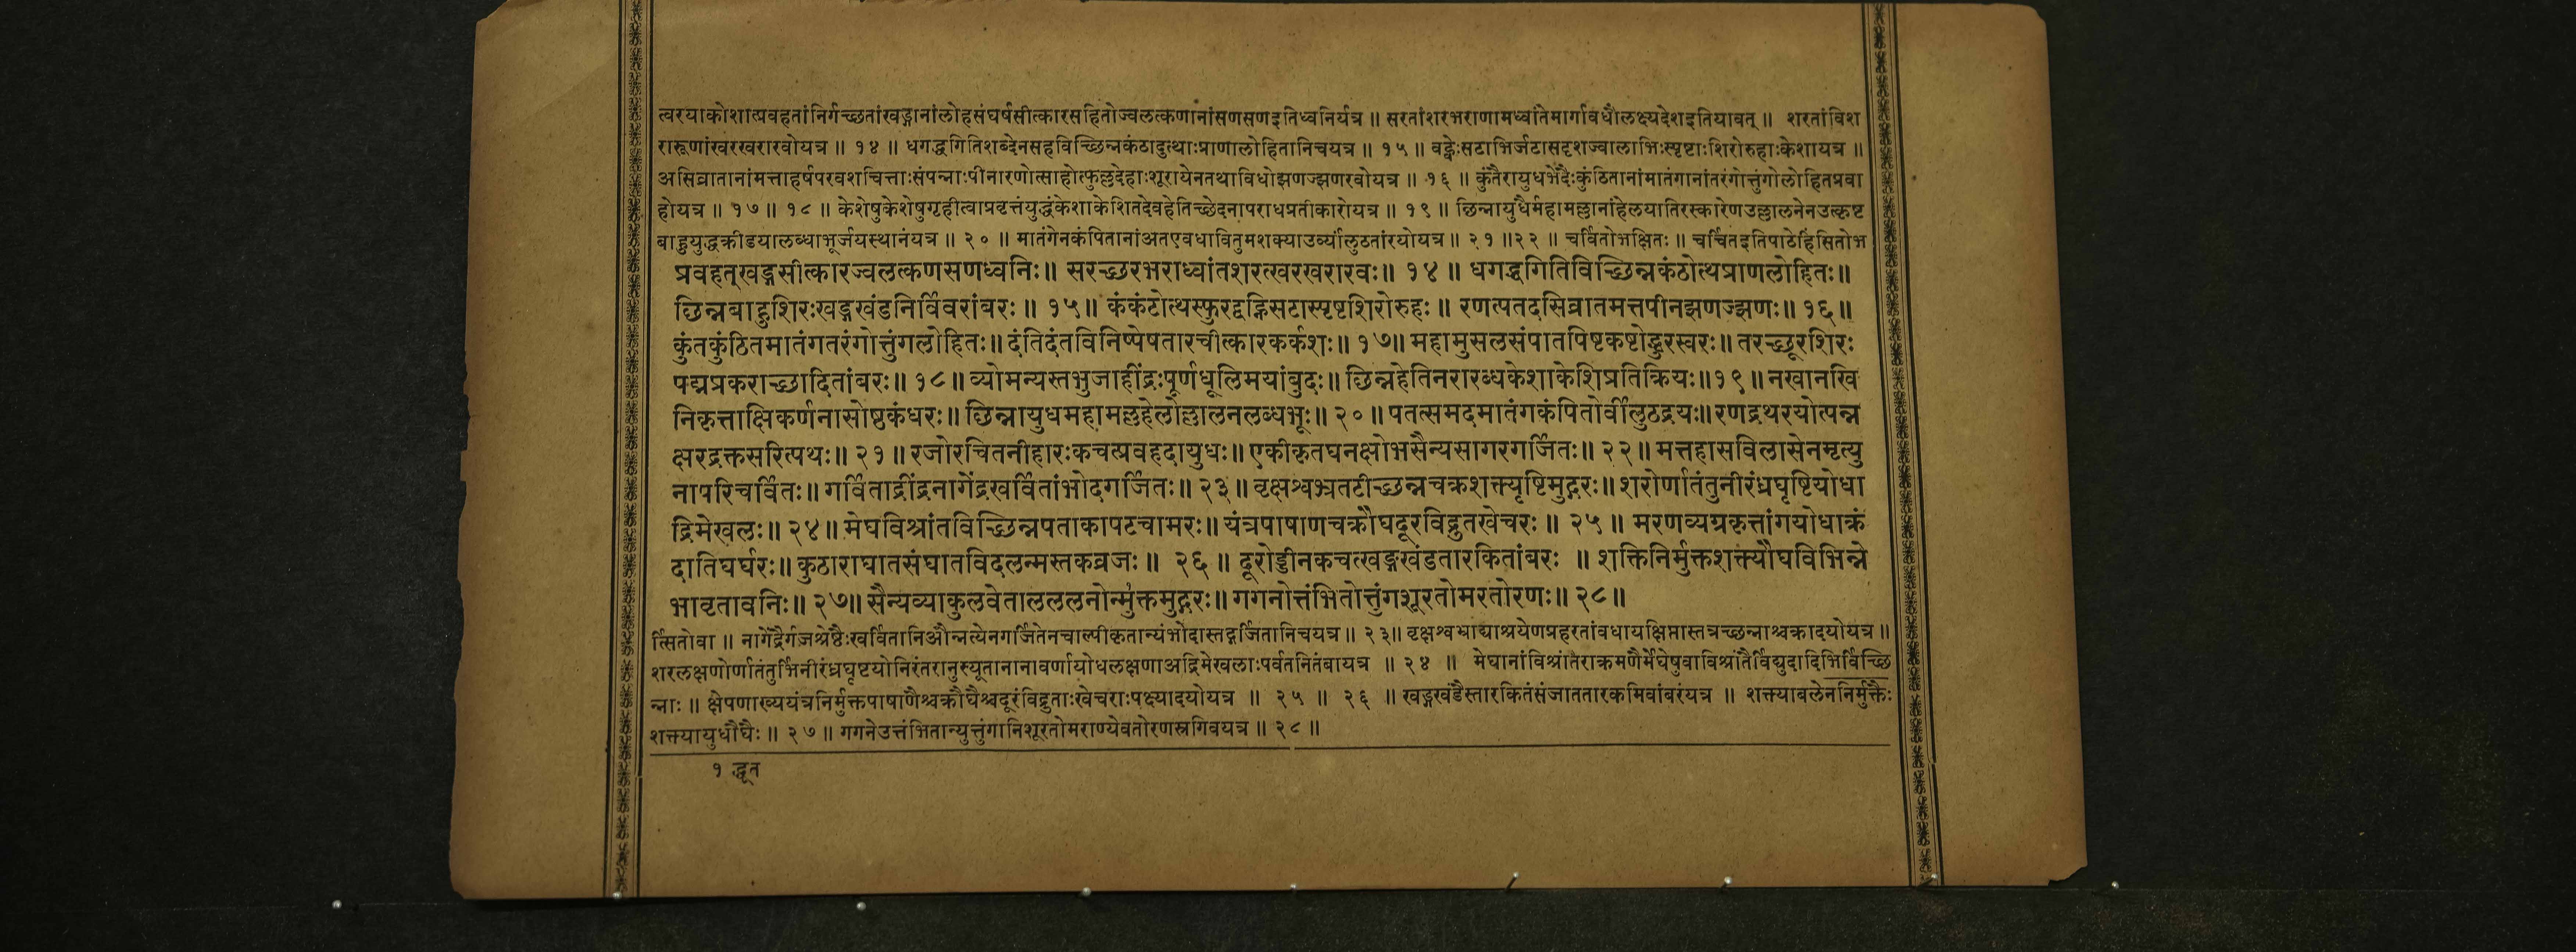 त्वरयाकोशात्प्रवहतांनिर्गच्छतांखङ्गानांलोहसंघर्षसीत्कारसहितोज्वलत्कणानांसणसणइतिध्वनिर्यत्र ॥ सरतांशरभराणामध्वांतेमार्गावधौलक्ष्यदेशइतियावत् ॥ शरतांविश
रारूणांखरखरारवोयत्र ॥ १४ ॥ धगद्धगितिशब्देनसहविच्छिन्नकंठादुत्थाःप्राणालोहितानिचयत्र ॥ १५ ॥ वह्नेःसटाभिर्जटासदृशज्वालाभिःस्पृष्टाःशिरोरुहाःकेशायत्र ॥
असिव्रातानांमत्ताहर्षपरवशचित्ताःसंपन्नाःपीनारणोत्साहोत्फुल्लदेहाःशूरायेनतथाविधोझणज्झणरवोयत्र ॥ १६ ॥ कुंतैरायुधभेदैःकुंठितानांमातंगानांतरंगोत्तुंगोलोहितप्रवा
होयत्र ॥ १७ ॥ १८ ॥ केशेषुकेशेषुगृहीत्वाप्रवृत्तंयुद्धंकेशाकेशितदेवहेतिच्छेदनापराधप्रतीकारोयत्र ॥ १९ ॥ छिन्नायुधैर्महामल्लानांहेलयातिरस्कारेणउल्लालनेनउत्कृष्ट
बाहुयुद्धक्रीडयालब्धाभूर्जयस्थानंयत्र ॥ २० ॥ मातंगेनकंपितानांअतएवधावितुमशक्याउर्व्यांलुठतांरयोयत्र ॥ २१ ॥२२ ॥ चर्वितोभक्षितः ॥ चर्चितइतिपाठेहिंसितोभ
प्रवहत्खङ्गसीत्कारज्वलत्कणसणध्वनिः॥ सरच्छरभराध्वांतशरत्खरखरारवः॥ १४ ॥ धगद्धगितिविच्छिन्नकंठोत्थप्राणलोहितः॥
छिन्नबाहुशिरःखङ्गखंडनिर्विवरांबरः ॥ १५॥ कंकंटोत्थस्फुरद्वह्निसटास्पृष्टशिरोरुहः ॥ रणत्पतदसिव्रातमत्तपीनझणज्झणः॥ १६॥
कुंतकुंठितमातंगतरंगोत्तुंगलोहितः॥ दंतिदंतविनिष्पेषतारचीत्कारकर्कशः॥ १७॥ महामुसलसंपातपिष्टकष्टोद्धुरस्वरः॥ तरच्छूरशिरः
पद्मप्रकराच्छादितांबरः॥ १८॥ व्योमन्यस्तभुजाहींद्रःपूर्णधूलिमयांबुदः॥ छिन्नहेतिनरारब्धकेशाकेशिप्रतिक्रियः॥१९॥ नखानखि
निकृत्ताक्षिकर्णनासोष्ठकंधरः॥ छिन्नायुधमहामल्लहेलोल्लालनलब्धभूः॥ २० ॥ पतत्समदमातंगकंपितोर्वीलुठद्रयः॥ रणद्रथरयोत्पन्न
क्षरद्रक्तसरित्पथः॥ २१ ॥ रजोरचितनीहारःकचत्प्रवहदायुधः॥ एकीकृतघनक्षोभसैन्यसागरगर्जितः॥ २२॥ मत्तहासविलासेनमृत्यु
नापरिचर्वितः॥ गर्विताद्रींद्रनागेंद्रखर्वितांभोदगर्जितः॥ २३॥ वृक्षश्वभ्रतटीच्छन्नचक्रशक्त्यृष्टिमुद्गरः॥ शरोर्णातंतुनीरंध्रघृष्टियोधा
द्रिमेखलः॥ २४॥ मेघविश्रांतविच्छिन्नपताकापटचामरः॥ यंत्रपाषाणचक्रौघदूरविद्रुतखेचरः ॥ २५ ॥ मरणव्यग्रकृत्तांगयोधाक्रं
दातिघर्घरः॥ कुठाराघातसंघातविदलन्मस्तकव्रजः ॥ २६ ॥ दूरोड्डीनकचत्खङ्गखंडतारकितांबरः ॥ शक्तिनिर्मुक्तशक्त्यौघविभिन्ने
भावृतावनिः॥ २७॥ सैन्यव्याकुलवेतालललनोन्मु१क्तमुद्गरः॥ गगनोत्तंभितोत्तुंगशूरतोमरतोरणः॥ २८॥
र्त्सितोवा ॥ नागेंद्रैर्गजश्रेष्ठैःखर्वितानिऔन्नत्येनगर्जितेनचाल्पीकृतान्यंभोदास्तद्गर्जितानिचयत्र ॥ २३॥ वृक्षश्वभ्राद्याश्रयेणप्रहरतांवधायक्षिप्तास्तत्रच्छन्नाश्चक्रादयोयत्र ॥
शरलक्षणोर्णातंतुभिर्नीरंध्रघृष्टयोनिरंतरानुस्यूतानानावर्णायोधलक्षणाअद्रिमेखलाःपर्वतनितंबायत्र ॥ २४ ॥ मेघानांविश्रांतैराक्रमणैर्मेघेषुवाविश्रांतैर्विद्युदादिभिर्विच्छि
न्नाः ॥ क्षेपणाख्ययंत्रनिर्मुक्तपाषाणैश्चक्रौघैश्चदूरंविद्रुताःखेचराःपक्ष्यादयोयत्र ॥ २५ ॥ २६ ॥ खङ्गखंडैस्तारकितंसंजाततारकमिवांबरंयत्र ॥ शक्त्याबलेननिर्मुक्तैः
शक्त्यायुधौघैः ॥ २७ ॥ गगनेउत्तंभितान्युत्तुंगानिशूरतोमराण्येवतोरणस्रगिवयत्र ॥ २८ ॥
१ द्धूत